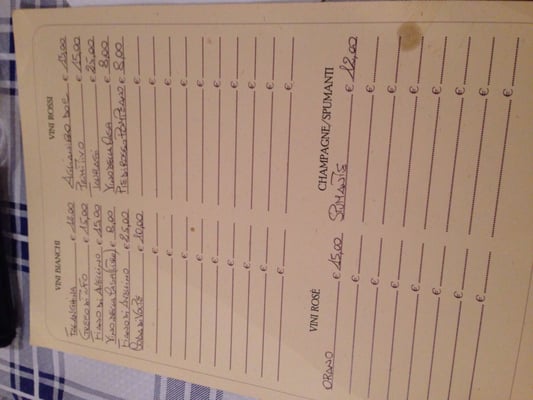 VINI BIANCHI
FALANGHINA € 12,00
GRECO DI TUFO € 15,00
FIANO DI AVELLINO € 15,00
VINO DELLA CASA € 8,00
FIANO DI AVELLINO € 25,00
€ 10,00
€
€
€
€
€
€
€
€
€
VINI ROSSI
AGLIANICO DOC € 15,00
€ 15,00
TAURASI € 25,00
VINO DELLA CASA € 8,00
PIEDIROSSO POMPEIANO € 8,00
€
€
€
€
€
€
€
€
€
€
VINI ROSÈ
ORANO € 15,00
€
€
€
€
€
CHAMPAGNE/SPUMANTI
SPUMANTE € 12,00
€
€
€
€
€
€
€